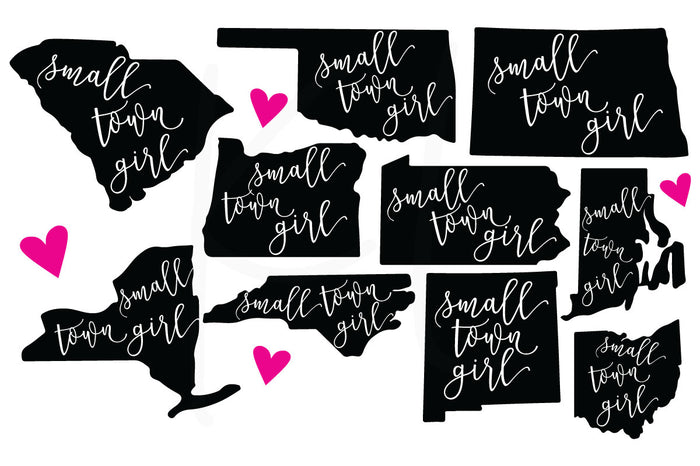 small
town
girl
small
town
girl
small
town
girl
small
town
girl
small
town
girl
small
town
girl
small
town girl
small town
girl
small
town
girl
small
town
girl